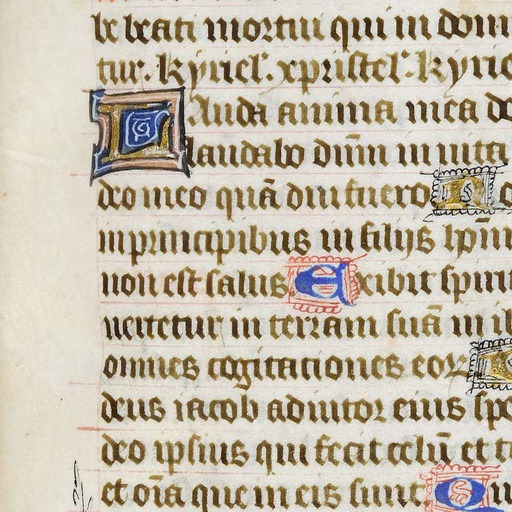 le beati mortui qui in domi
tur. Kyriel. xpristel. Kyrie
Lauda anima mea do
laudabo dnm in uita
deo meo quā diu fuero N o
in principibus in filijs hom̄
non est salus Exibit spirit
uertetur in terram suā in il
omnes cogitationes eor
deus iacob adiutor eius spe
deo ipsius qui fecit celū et t
et oīa que in eis sunt Q